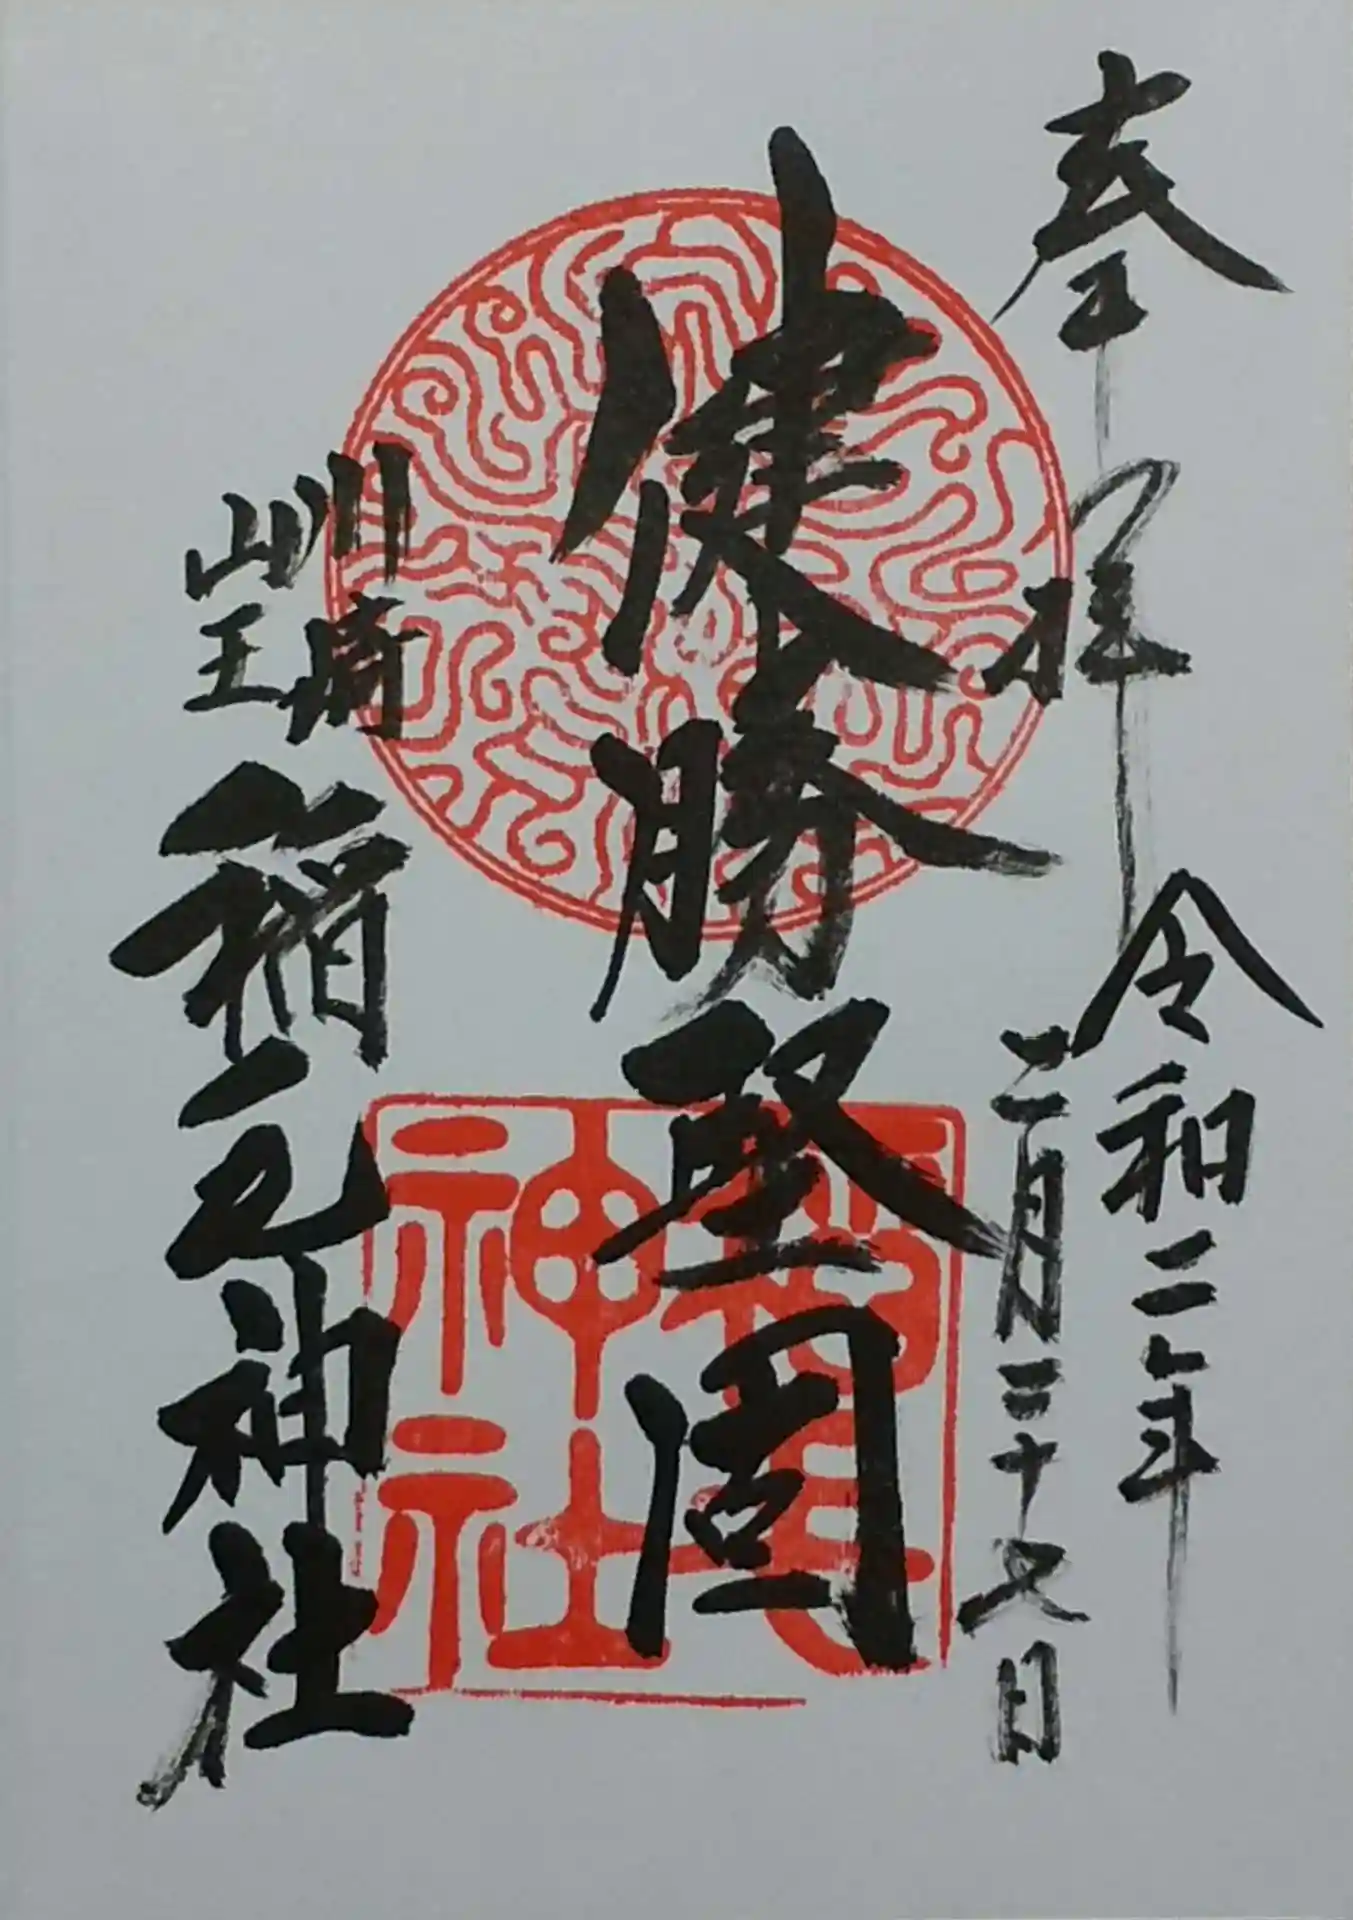 奉拝
令和二年
二月二十 日
健勝堅固
川崎
山王
稲毛神社
稲毛
神社